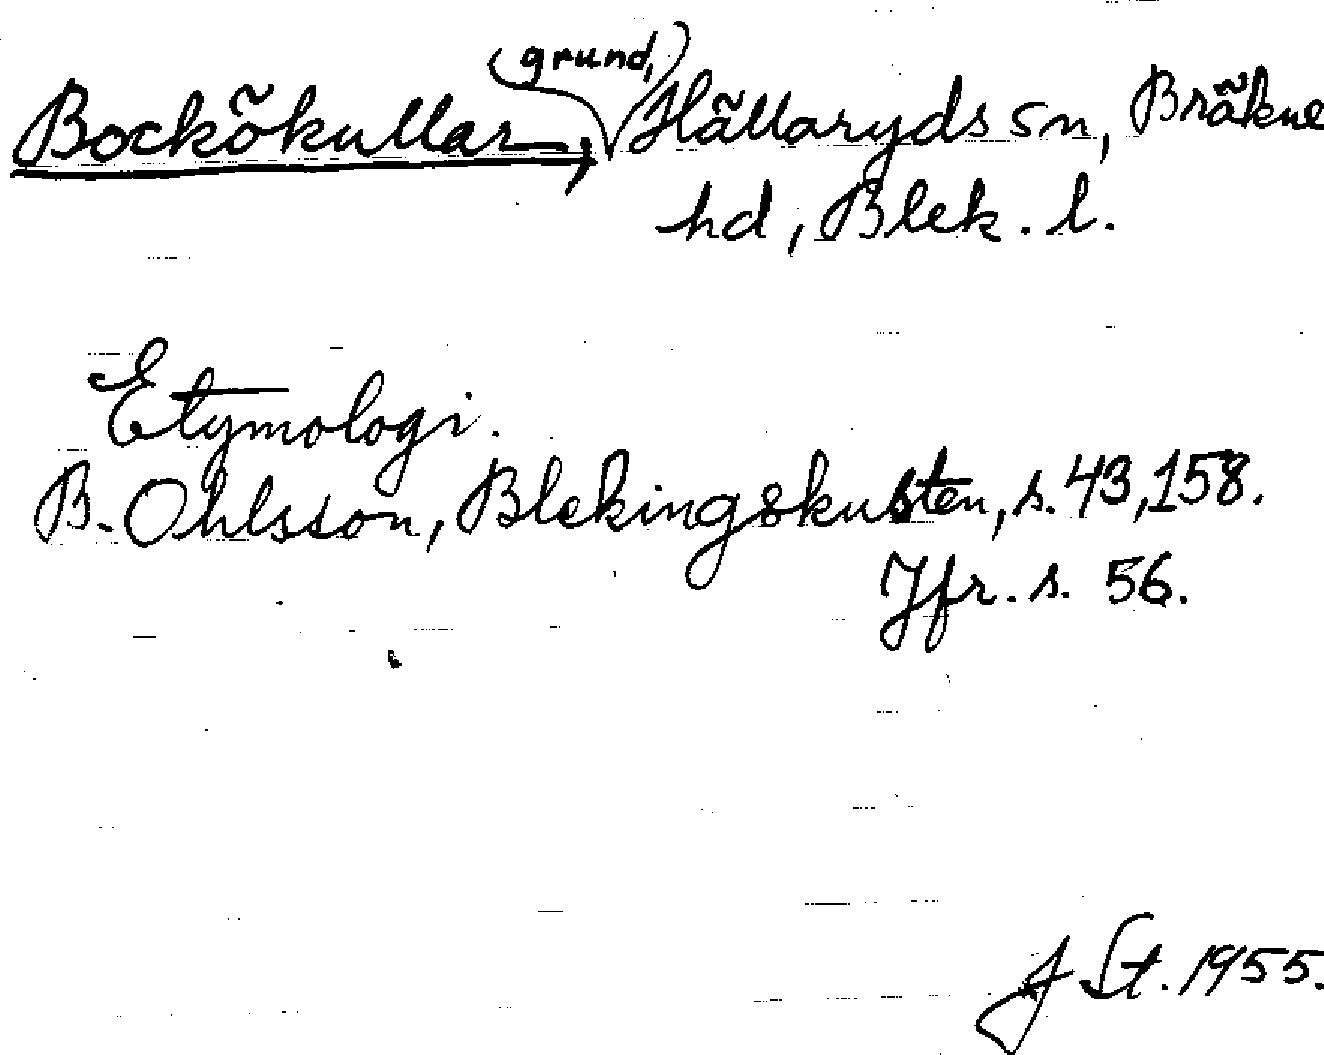 Bockökullar, grund, Hällaryds sn, Bräkne
hd, Blek. l.
Etymologi.
B. Ohlsson, Blekingskusten, s. 43, 158.
Jfr. s. 56.
J St. 1955.